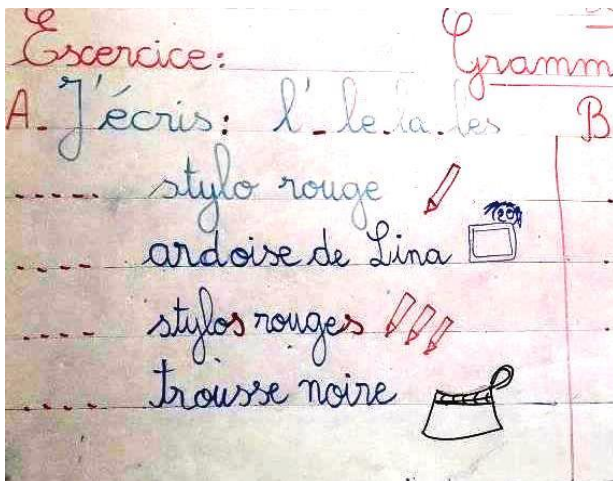 Excercice:
Gramm
A. J'écris: l'-le.la.les
B
..... stylo rouge
.... ardoise de Lina
.... stylos rouges
.... trousse noire